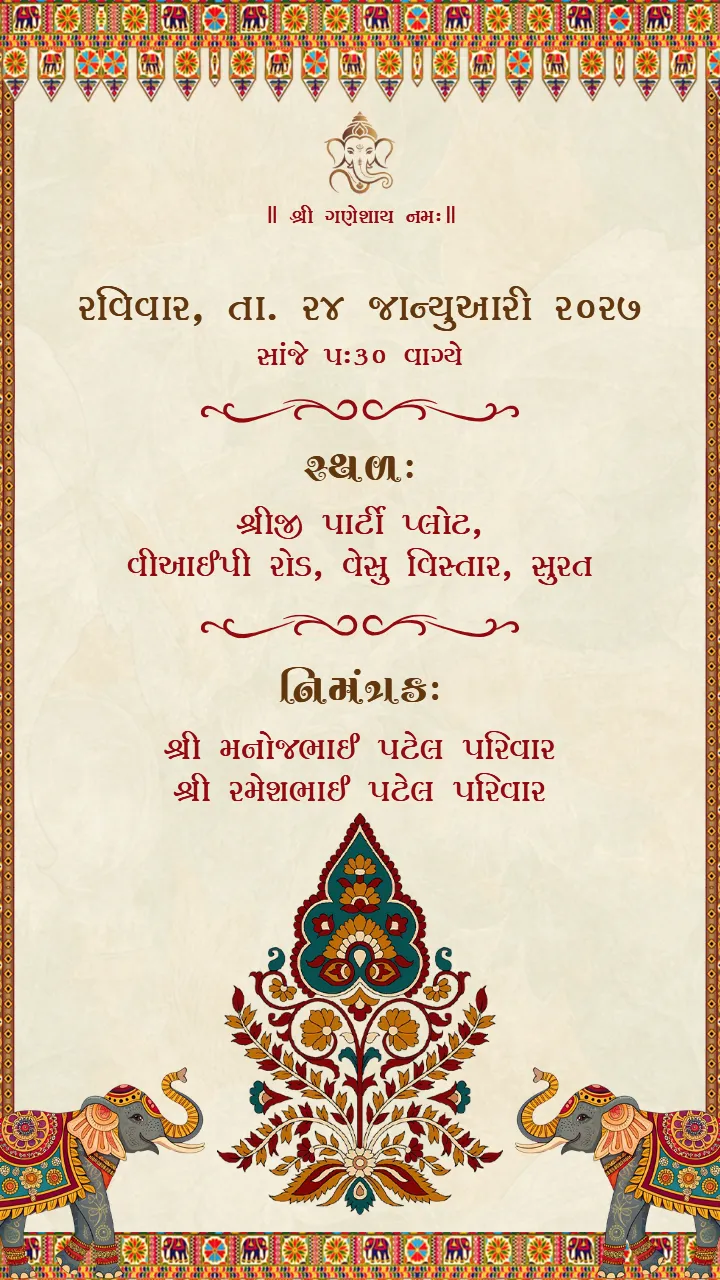 ॥ શ્રી ગણેશાય નમઃ॥
રવિવાર, તા. ૨૪ જાન્યુઆરી ૨૦૨૭
સાંજે ૫:૩૦ વાગ્યે
સ્થળઃ
શ્રીજી પાર્ટી પ્લોટ,
વીઆઈપી રોડ, વેસુ વિસ્તાર, સુરત
નિમંત્રકઃ
શ્રી મનોજભાઈ પટેલ પરિવાર
શ્રી રમેશભાઈ પટેલ પરિવાર